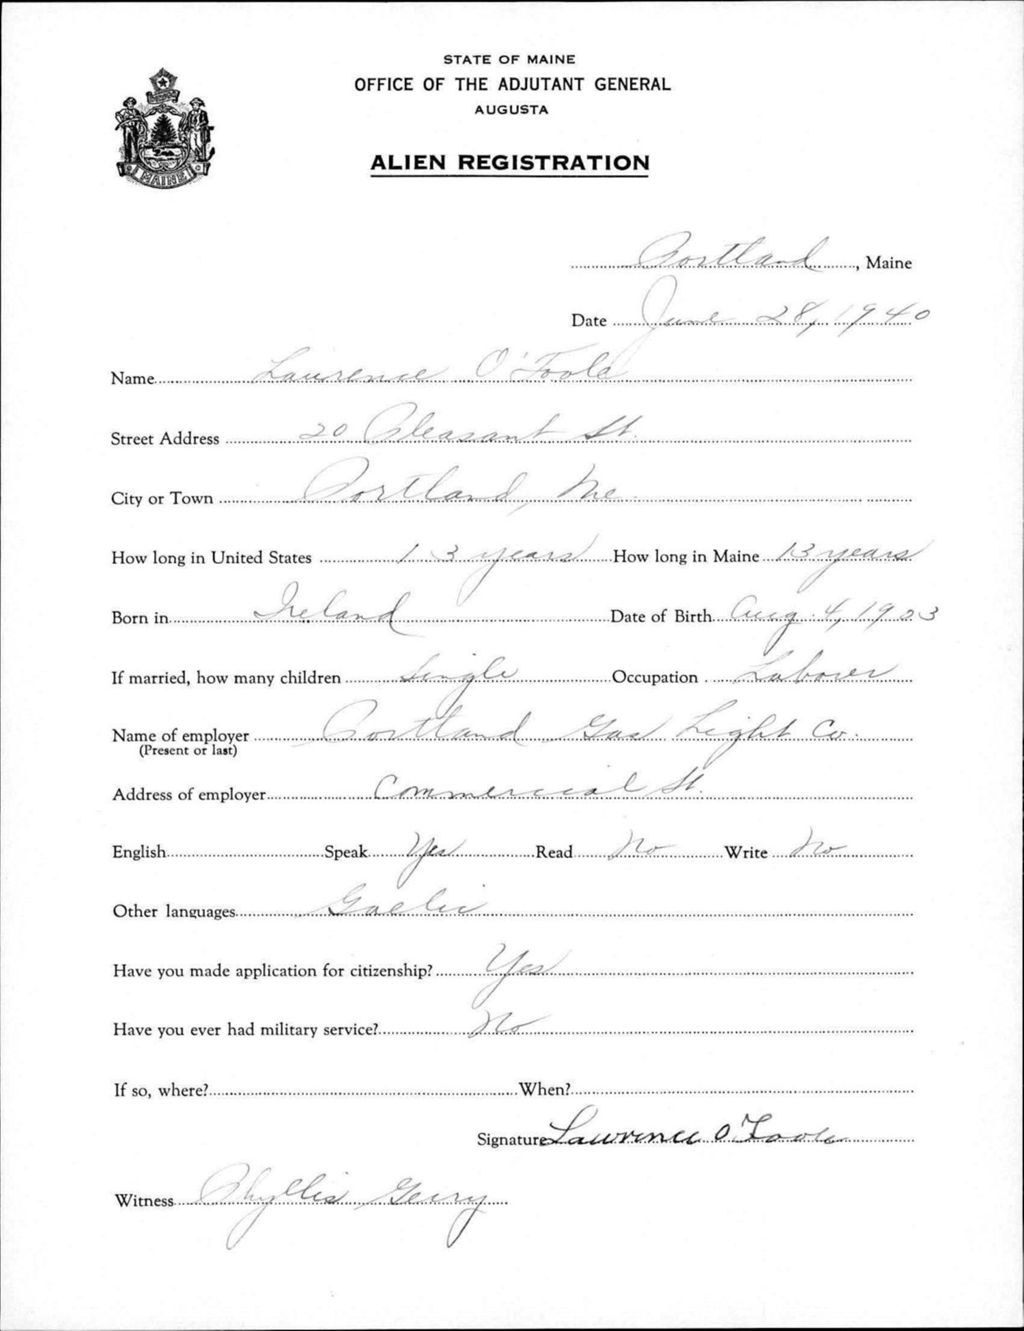 STATE OF MAINE
OFFICE OF THE ADJUTANT GENERAL
AUGUSTA
ALIEN REGISTRATION
MAINE
Portland, Maine
Date June 28, 1940
Name Lawrence O'Toole
Street Address 20 Pleasant St.
City or Town Portland, Me.
How long in United States 13 years How long in Maine 13 years
Born in Ireland Date of Birth Aug. 4, 1903
If married, how many children Single Occupation Laborer
Name of employer Portland Gas Light Co.
(Present or last)
Address of employer Commercial St.
English Speak Yes Read No Write No
Other languages Gaelic
Have you made application for citizenship? Yes
Have you ever had military service? No
If so, where? When?
Signature Lawrence O'Toole
Witness Phyllis Geary